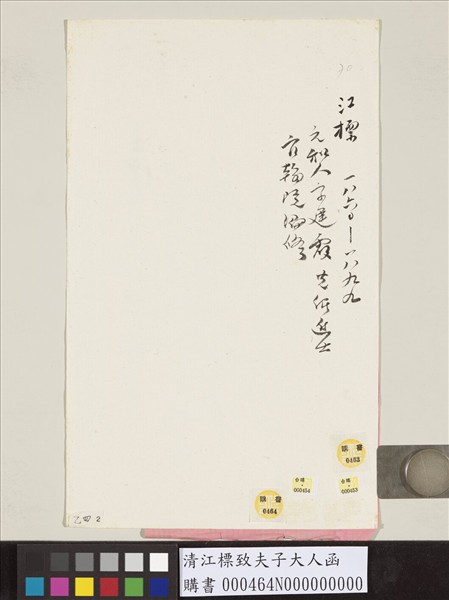 20
江標 一八六〇-一八九九
元和人字建霞光緒進士
官翰院編修
購書
0463
金購
000454
金購
000453
購書
0464
乙四 2
清江標致夫子大人函
購書 000464N000000000